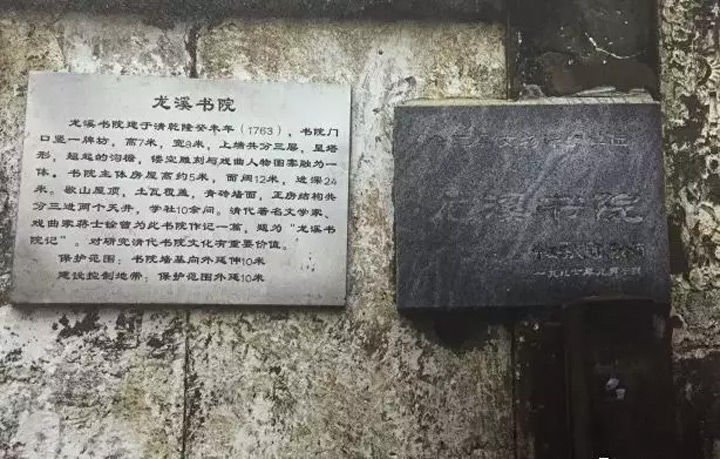 龙溪书院
龙溪书院建于清乾隆癸未年(1763),书院门
口竖一牌坊,高7米,宽9米,上端共分三层,呈塔
形,超起的沟檐,缕空雕刻与戏曲人物图案融为一
体。书院主体房屋高约5米,面阔12米,进深24
米。歇山屋顶,土瓦覆盖,青砖墙面,正房结构共
分三进两个天井,学社10余间。清代著名文学家、
戏曲家蒋士铨曾为此书院作记一篇,题为“龙溪书
院记”。对研究清代书院文化有重要价值。
保护范围:书院墙基向外延伸10米
建设控制地带:保护范围外延10米
龙溪书院
一九八